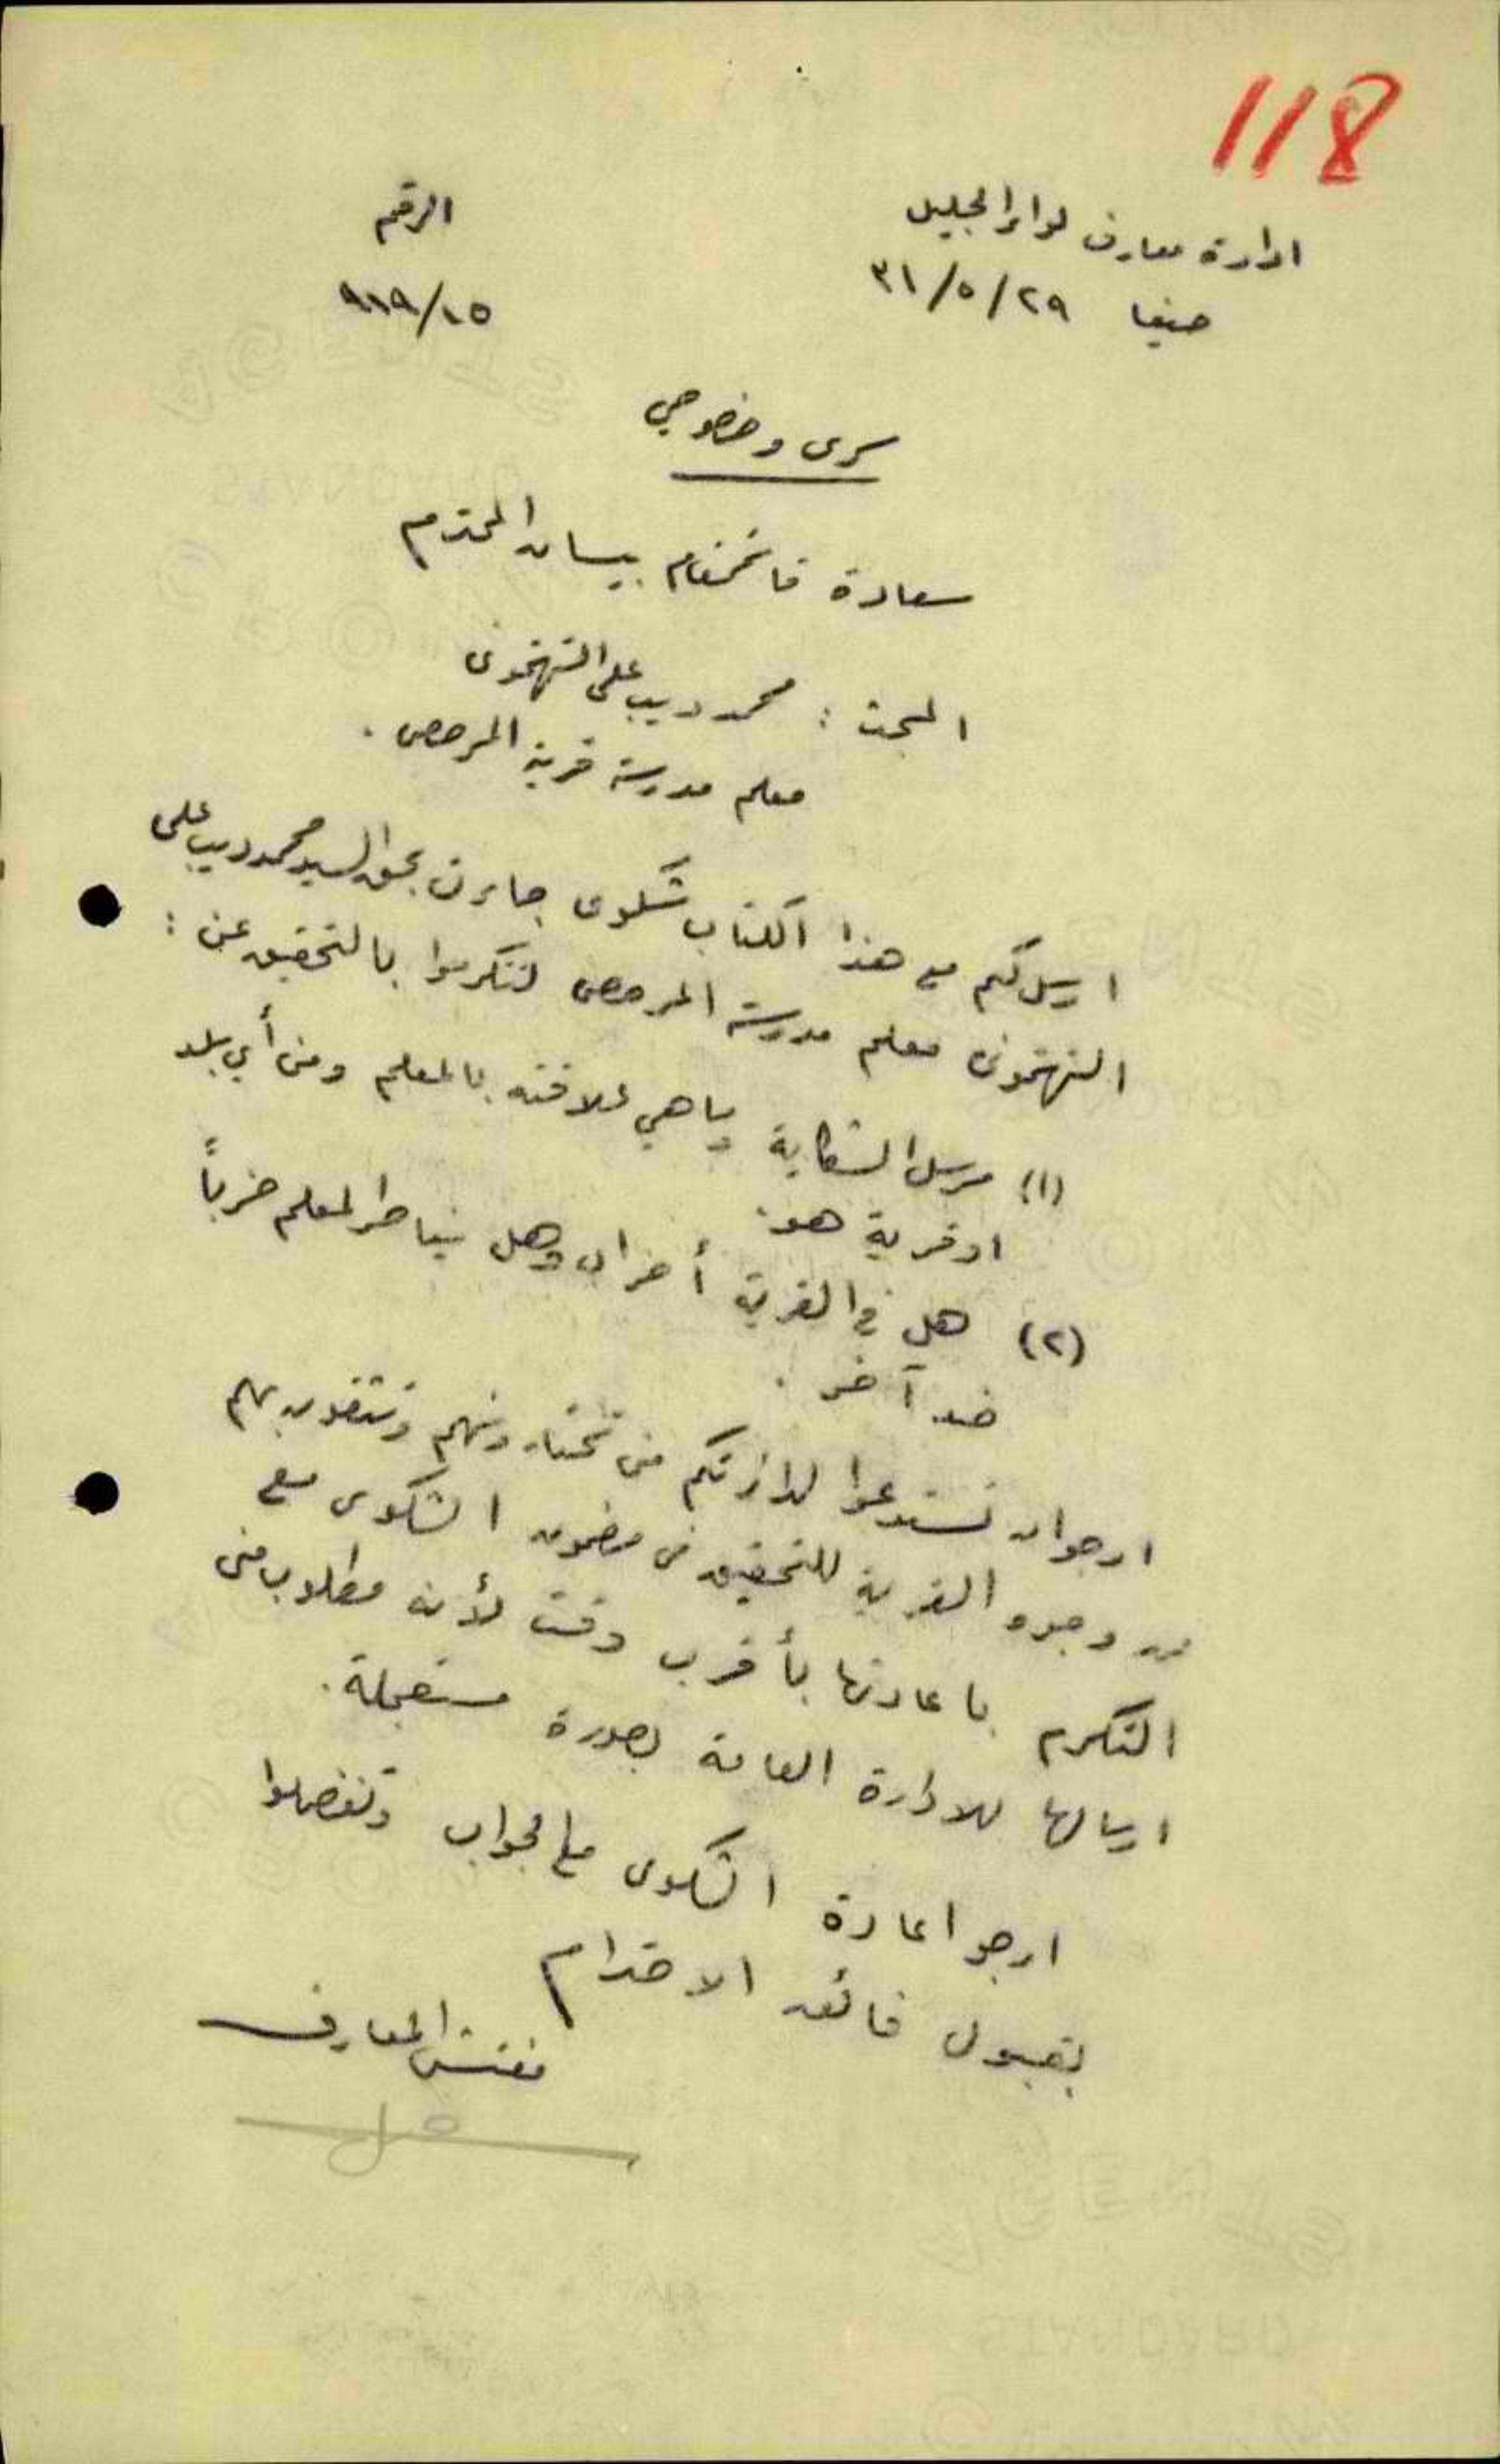 118
ادارة معارف لواء الجليل
حيفا ٢٩/٥/٣١
الرقم
٩١٩/١٥
سري وخصوصي
سعادة قائمقام بيسان المحترم
المبحث : محمد ديب علي
معلم مدرسة قرية المرصص .
ارسل لكم مع هذا الكتاب شكوى جاءت بحق السيد محمد ديب علي
معلم مدرسة المرصص لتتكرموا بالتحقيق عن :
(١) مرسل الشكاية وما هي علاقته بالمعلم ومن أي بلد
او قرية هو.
(٢) هل في القرية أحزاب وهل يناصر المعلم حزباً
ضد آخر .
ارجو ان تستدعوا لدائرتكم من تختارونهم وتثقون بهم
من وجوه القرية للتحقيق عن مضمون الشكوى مع
التكرم باعادتها بأقرب وقت لأنه مطلوب مني
ارسالها للادارة العامة بصورة مستعجلة.
ارجو اعادة الشكوى مع الجواب وتفضلوا
بقبول فائق الاحترام
مفتش المعارف